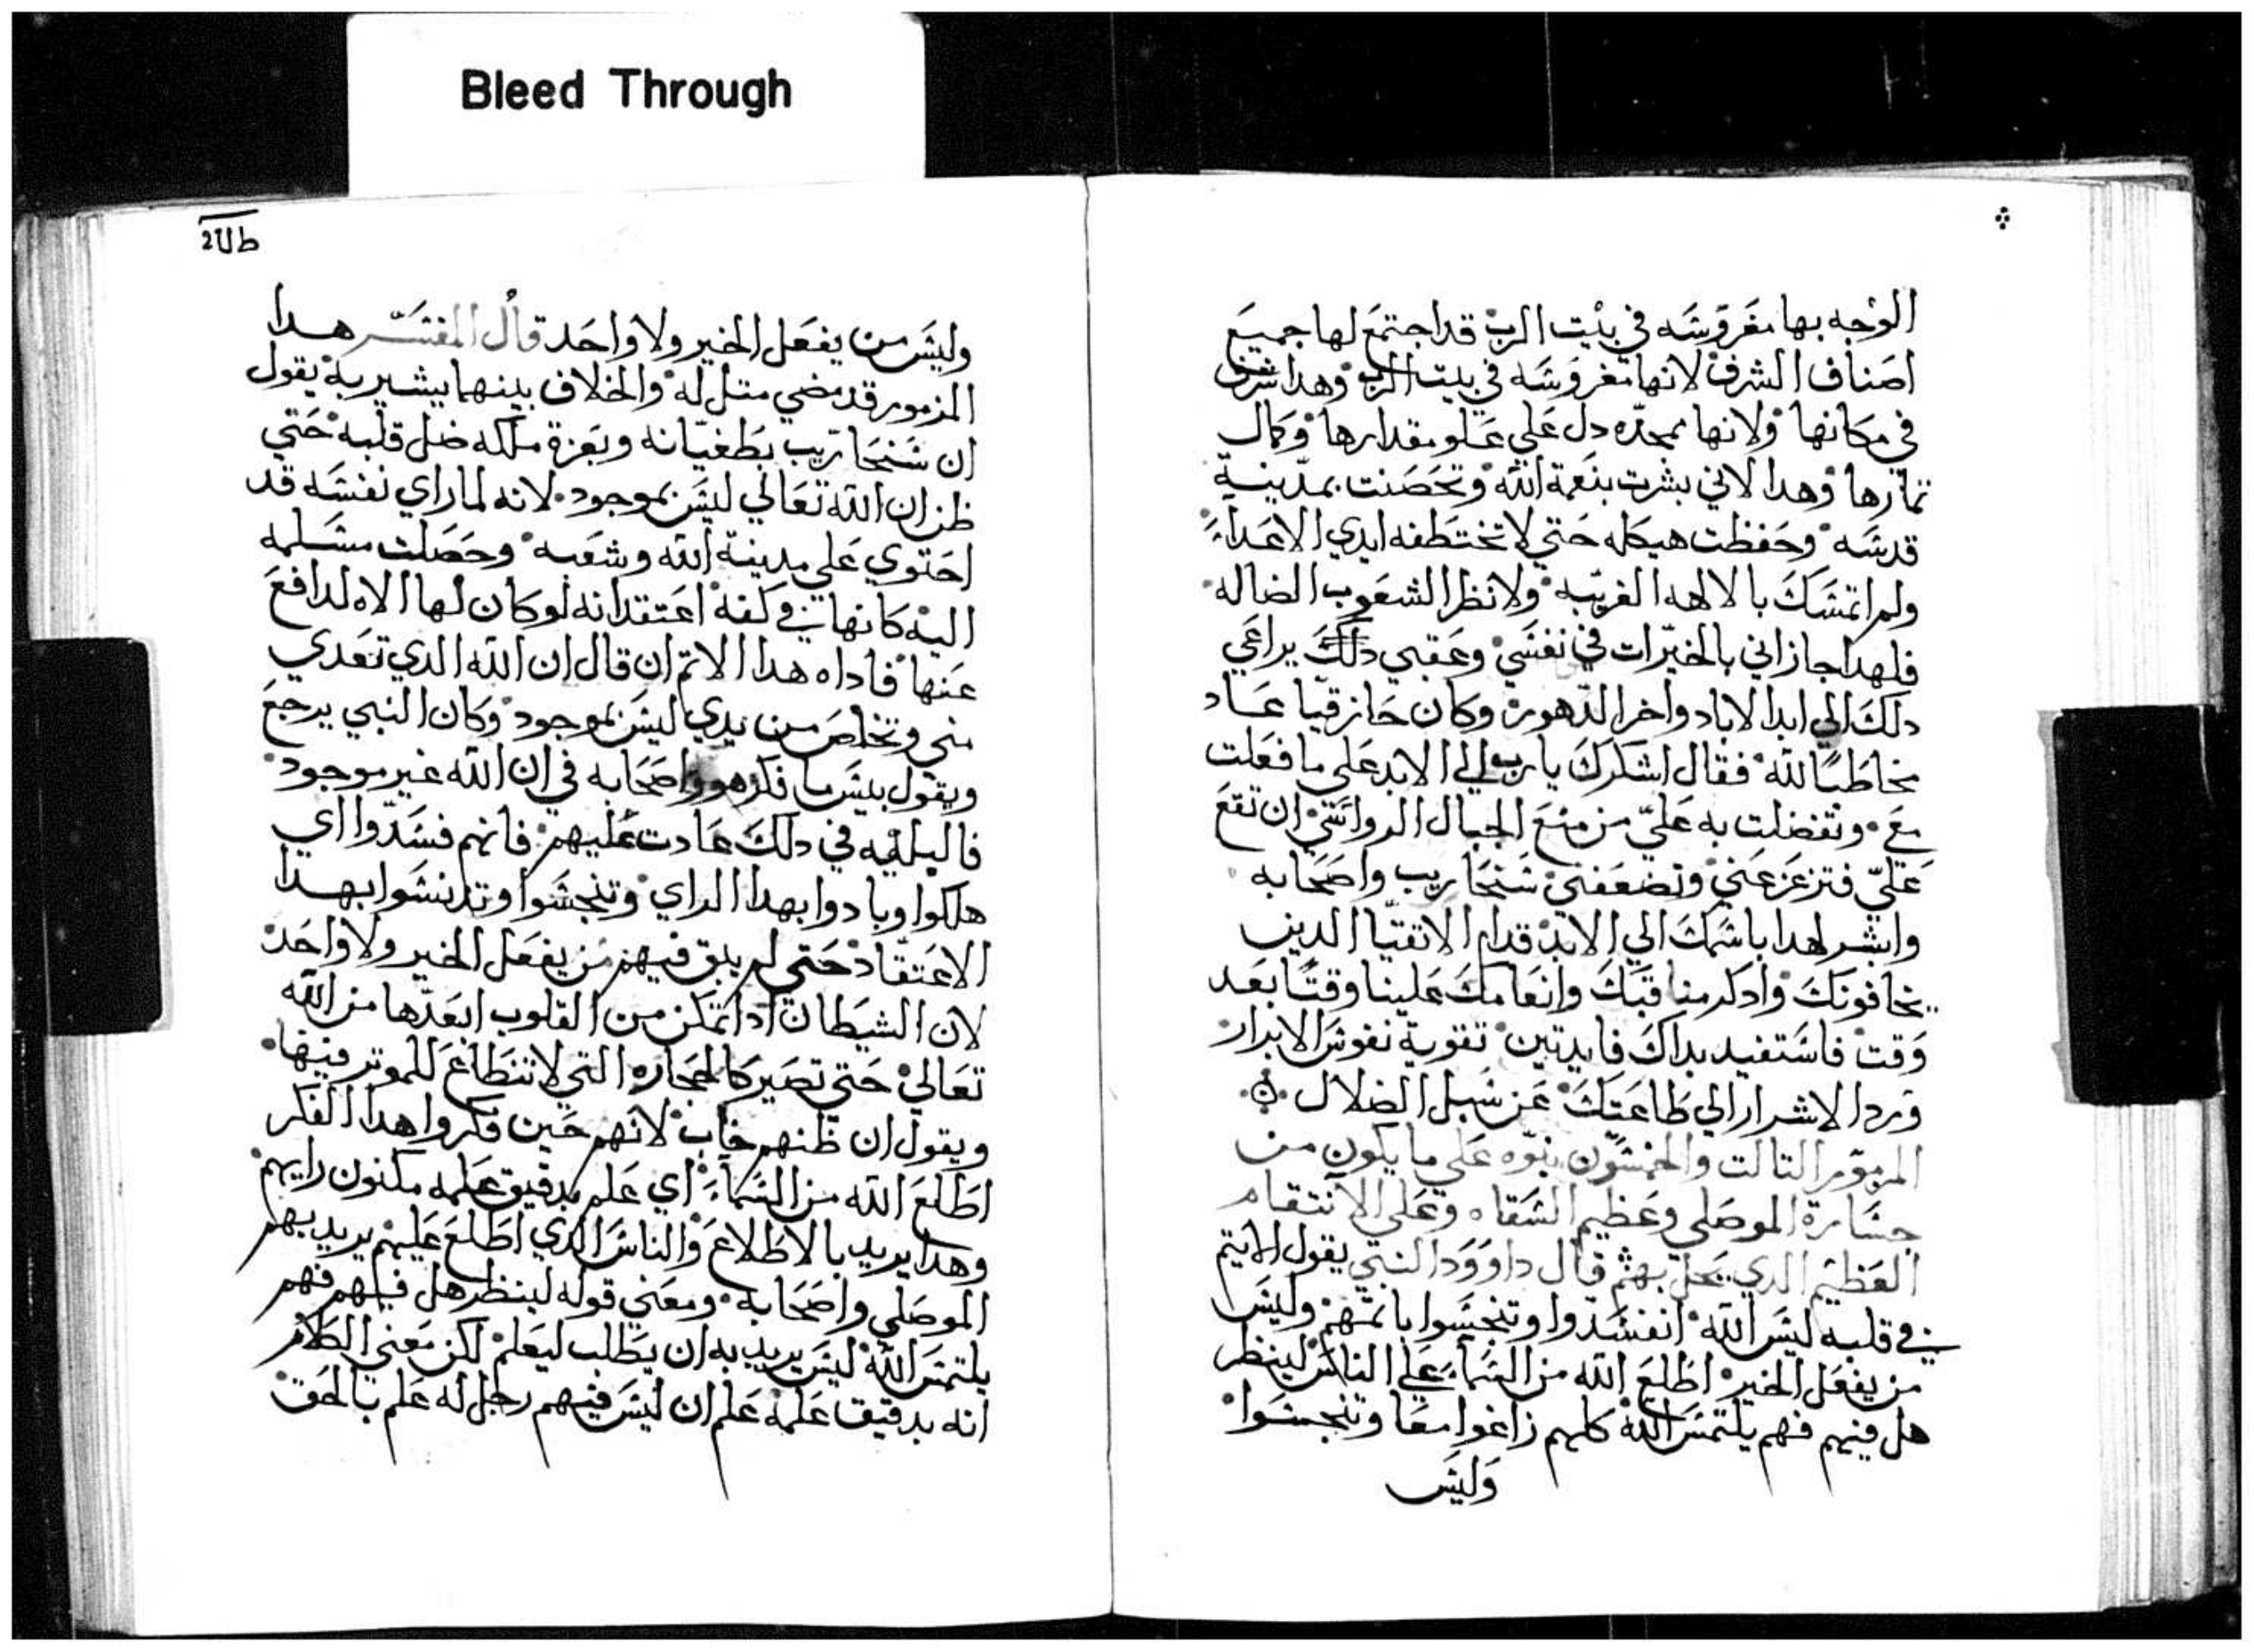 Bleed Through
الوجه بها مغروسه في بيت الرب قد اجتمع لها جميع
اصناف الشرف لانها مغروسه في بيت الرب وهدا شرف
في مكانها ولانها ممجده دل علي علو مقدارها وكمال
تمارها وهدا لاني بشرت بنعمة الله وتحصنت بمدينة
قدسه وحفظت هيكله حتي لا تختطفه ايدي الاعداء
ولم اتمسك بالالهه الغريبه ولا نظر الشعوب الضاله
فلهدا جازاني بالخيرات في نفسي وعقبي يراعي
دلك الي ابد الاباد واخر الدهور وكان حازرقيا عاد
مخاطبا لله فقال اشكرك يارب الي الابد علي ما فعلت
مع وتفضلت به علي من منع الجبال الرواسي ان تقع
علي فتزعزعني وتضعفني سنحاريب واصحابه
وابشر لهدا باسمك الي الابد قدام الاتقيا الدين
يخافونك وادكر مناقبك وانعامك علينا وقتا بعد
وقت فاستفيد بداك فايدتين تقوية نفوس الابرار
ورد الاشرار الي طاعتك عن سبل الضلال
المزمور التالت والخمسون نبوه علي ما يكون من
جسارة الموصلي وعظيم الشقاه وعلي الانتقام
العظيم الدي يحل بهم قال داوود النبي يقول الاتيم
في قلبه ليس الله انفسدوا وتنجسوا باتمهم وليس
من يفعل الخير اطلع الله من السماء علي الناس لينظر
هل فيهم فهم يلتمس الله كلهم زاغوا معا وتنجسوا
وليس
وليس من يفعل الخير ولا واحد قال المفسر هدا
المزمور قد مضي متل له والخلاف بينهما يشير به يقول
ان سنحاريب بطغيانه وبعزة ملكه ضل قلبه حتي
ظن ان الله تعالي ليس بموجود لانه لما راي نفسه قد
احتوي علي مدينة الله وشعبه وحصلت مسلمه
اليه كانها في كفه اعتقد انه لو كان لها الاه لدافع
عنها فاداه هدا الاتم ان قال ان الله الدي تعدي
مني وتخلص من يدي ليس بموجود وكان النبي يرجع
ويقول بيس ما فكر هو واصحابه في ان الله غير موجود
فالبليه في دلك عادت عليهم فانهم فسدوا اي
هلكوا وبادوا بهدا الراي وتنجسوا وتدنسوا بهدا
الاعتقاد حتي لم يبق فيهم من يفعل الخير ولا واحد
لان الشيطان ادا تمكن من القلوب ابعدها من الله
تعالي حتي تصير كالحجاره التي لا تنطاع للموتر فيها
ويقول ان ظنهم خاب لانهم حين فكروا هدا الفكر
اطلع الله من السماء اي علم بدقيق علمه مكنون رايهم
وهدا يريد بالاطلاع والناس الدي اطلع عليهم يريد بهم
الموصلي واصحابه ومعني قوله لينظر هل فيهم فهم
يلتمس الله ليس يريد به ان يطلب ليعلم لكن معني الكلام
انه بدقيق علمه علم ان ليس فيهم رجل له علم بالحق